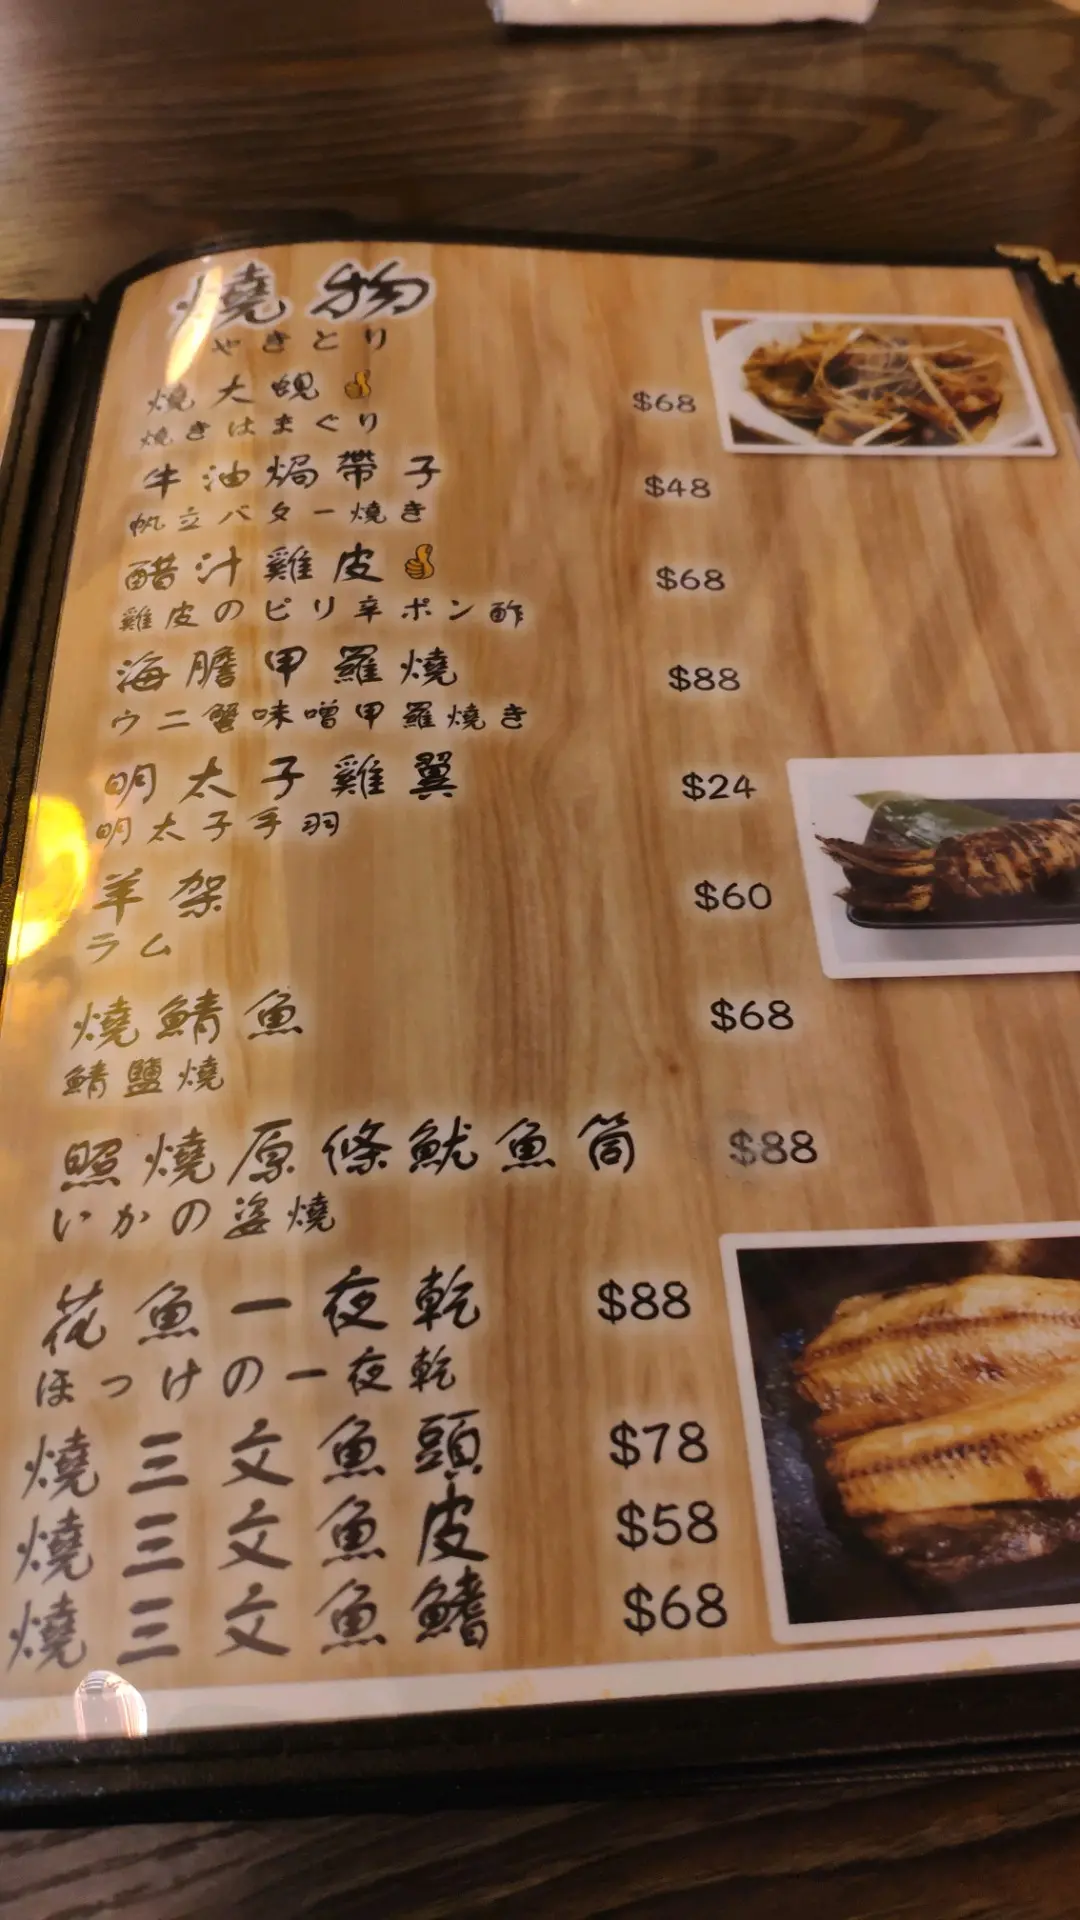 燒物
やきとり
燒大蜆👍 $68
燒きはまぐり
牛油焗帶子 $48
帆立バター燒き
醋汁雞皮👍 $68
雞皮のピリ辛ポン酢
海膽甲羅燒 $88
ウニ蟹味噌甲羅燒き
明太子雞翼 $24
明太子手羽
羊架 $60
ラム
燒鯖魚 $68
鯖鹽燒
照燒原條魷魚筒 $88
いかの姿燒
花魚一夜乾 $88
ほっけの一夜乾
燒三文魚頭 $78
燒三文魚皮 $58
燒三文魚鰭 $68